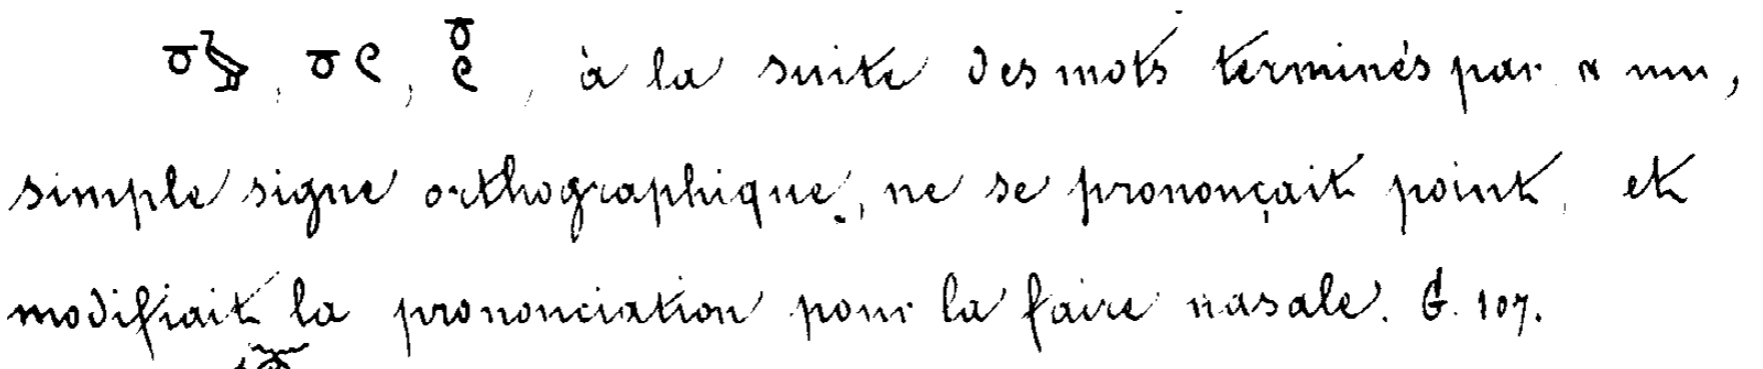 , , , à la suite des mots terminés par nu,
simple signe orthographique, ne se prononçait point, et
modifiait la prononciation pour la faire nasale. G. 107.